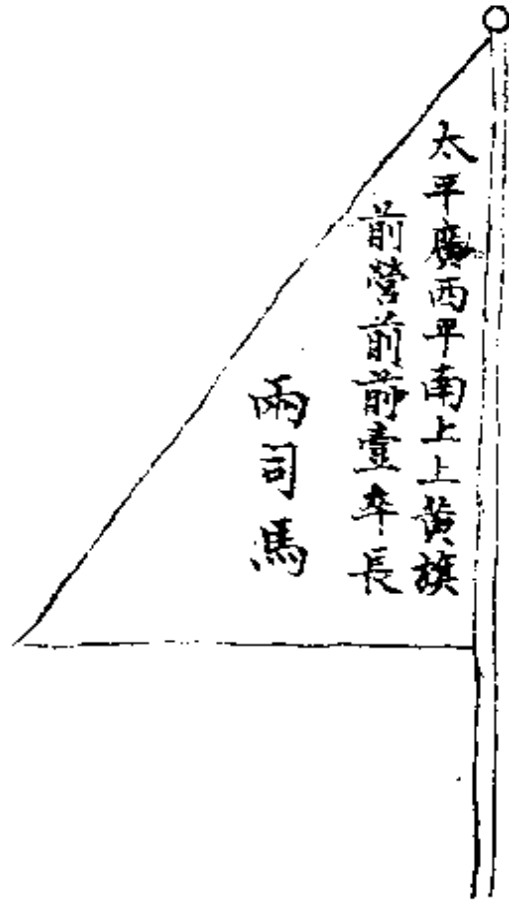 太平廣西平南上上黃旗
前營前前壹卒長
兩司馬